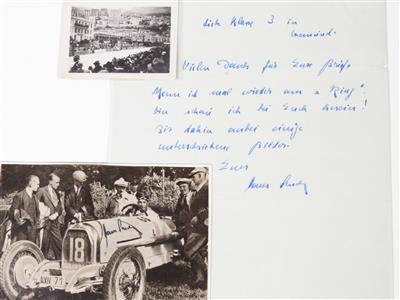 die Klasse 3 in
Gemünd.
Vielen Dank für Eure Grüße
Wenn ich mal wieder am „Ring"
bin schau ich bei Euch herein!
Bis dahin anbei einige
unterschriebene Bilder.
Euer
Hans Stuck
Hans Stuck
18
71